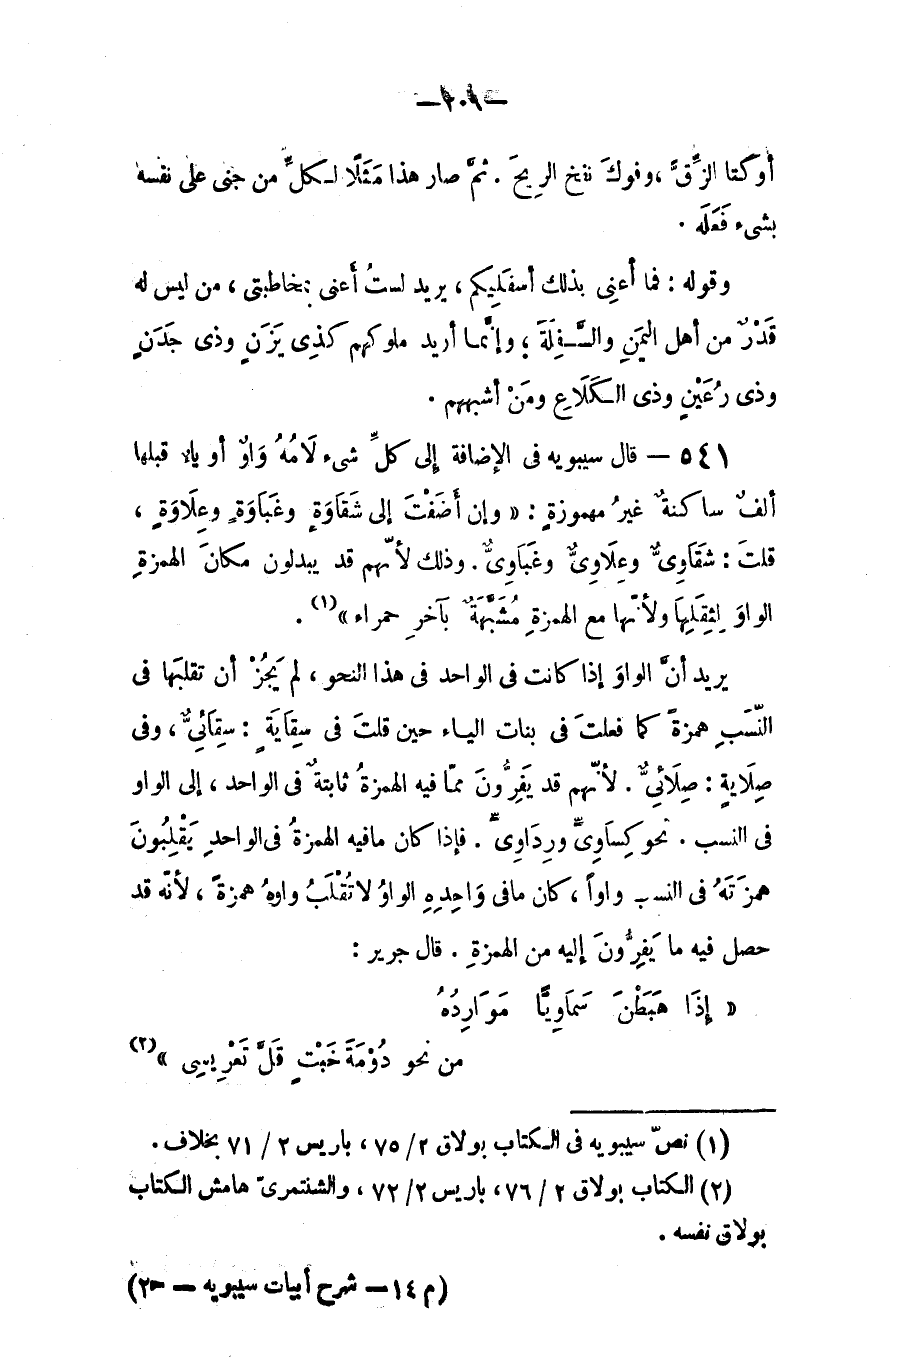 — ٢٠٩ —
أوكتا الزِّقَّ ، وفوكَ نفخ الريحَ . ثمَّ صار هذا مَثَلًا لـكلِّ من جنى على نفسه
بشىء فَعَلَه .
وقوله : فما أعنِى بذلك أسفَلِيكم ، يريد لستُ أَعنى بمخاطبتى ، من ليس له
قَدْرٌ من أهل اليمَنِ والسَّـفِلَةَ ؛ وإنَّمـا أريد ملوكهم كذِى يَزَنٍ وذى جَدَنٍ
وذى رُعَيْنٍ وذى الـكَلَاعِ ومَنْ أشبههم .
٥٤١ — قال سيبويه فى الإضافة إلى كلِّ شىء لَامُهُ وَاوٌ أو ياء قبلها
ألفٌ ساكنةٌ غيرُ مهموزةٍ : « وإن أَضَفْتَ إلى شَقَاوَةٍ وغَبَاوَةٍ وعِلَاوَةٍ ،
قلتَ : شَقَاوِىٌّ وعِلَاوِىٌّ وغَبَاوِىٌّ . وذلك لأنّهم قد يبدلون مكانَ الهمزةِ
الواوَ لِثِقَلِهَا ولأنّها مع الهمزةِ مُشَبَّهَةٌ بآخرِ حمراء »(١) .
يريد أنَّ الواوَ إذا كانت فى الواحد فى هذا النحو ، لم يَجُزْ أن تقلبَها فى
النّسَبِ همزةً كما فعلتَ فى بنات اليـاء حين قلتَ فى سِقَايَةٍ : سِقَائِىٌّ ، وفى
صِلَايةٍ : صِلَائِىٌّ . لأنّهم قد يَفِرُّونَ ممّا فيه الهمزةُ ثابتةٌ فى الواحد ، إلى الواو
فى النسب . نحو كِسَاوِىٍّ ورِدَاوِىٍّ . فإذا كان مافيه الهمزةُ فى الواحدِ يَقْلِبُونَ
همزَتَهُ فى النسب واواً ، كان مافى وَاحِدِهِ الواوُ لا تُقْلَبُ واوهُ همزةً ، لأنّه قد
حصل فيه ما يَفِرُّونَ إليه من الهمزةِ . قال جرير :
« إِذَا هَبَطْنَ سَمَاوِيًّا مَوَارِدُهُ
من نحو دُوْمَةَ خَبْتٍ قَلَّ تَعْرِيسِى »(٢)
(١) نصّ سيبويه فى الـكتاب بولاق ٢/ ٧٥ ، باريس ٢ / ٧١ بخلاف .
(٢) الـكتاب بولاق ٢ / ٧٦ ، باريس ٢/ ٧٢ ، والشنتمرىّ هامش الـكتاب
بولاق نفسه .
(م ١٤ — شرح أبيات سيبويه — ح٢)